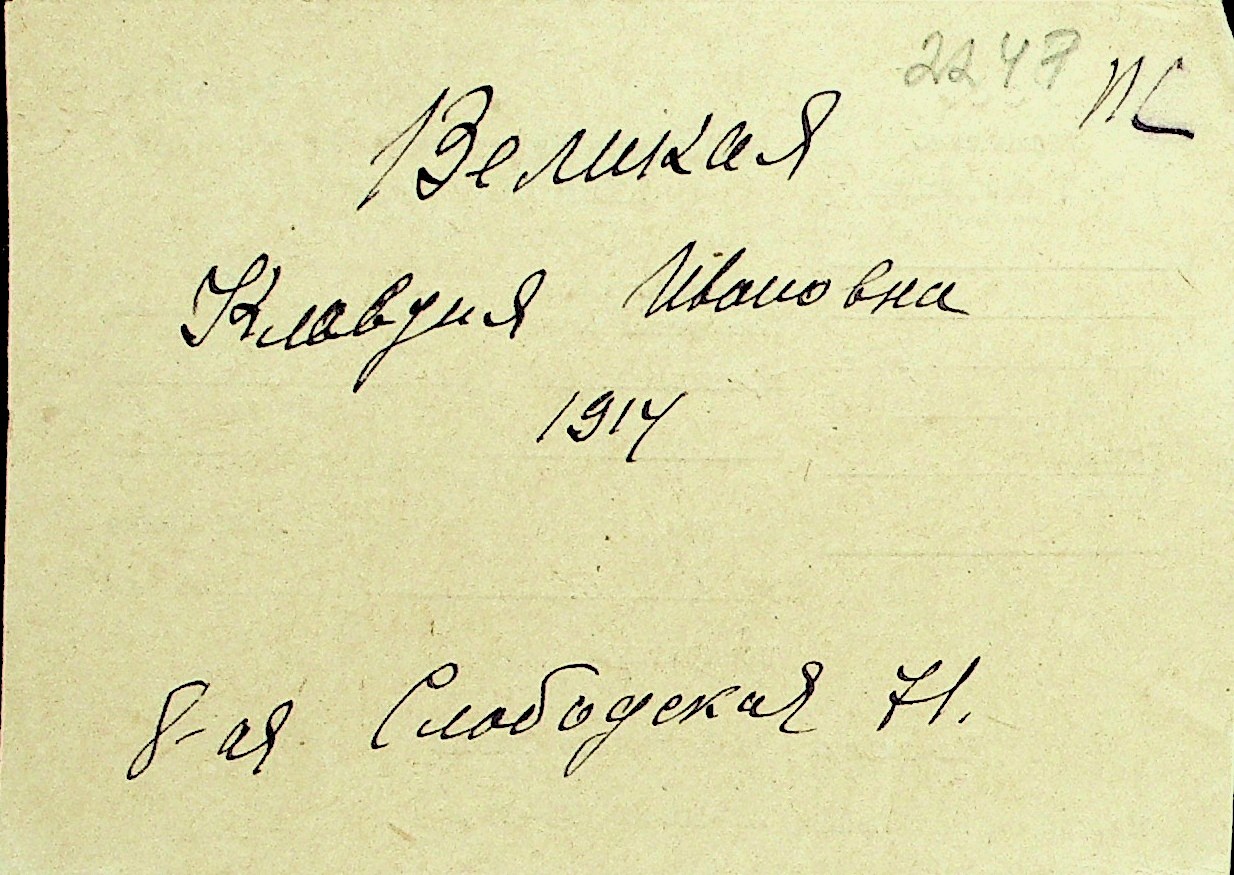 2247
Великая
Клавдия Ивановна
1914
8-ая Слободская 71.